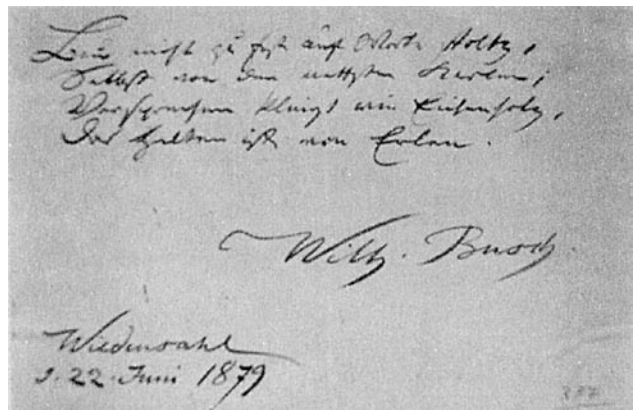 Bau nicht zu fest auf Worte stolz,
Selbst von den nettsten Kerlen;
Versprechen klingt wie Eichenholz,
Das Halten ist von Erlen.
Wilh. Busch.
Wiedensahl
d. 22. Juni 1879
237